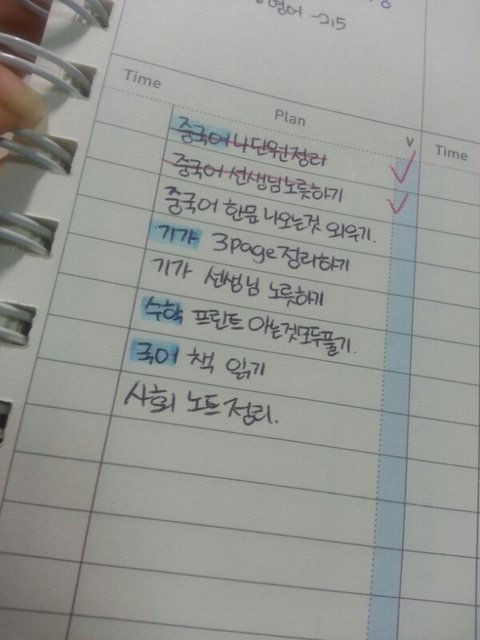 영어 -215
Time Plan V Time
중국어 나단원정리 ✓
중국어 선생님노릇하기 ✓
중국어 한문 나오는것 외우기.
기가 3page정리하기
기가 선생님 노릇하기
수학 프린트 아는것모두풀기.
국어 책 읽기
사회 노트정리.